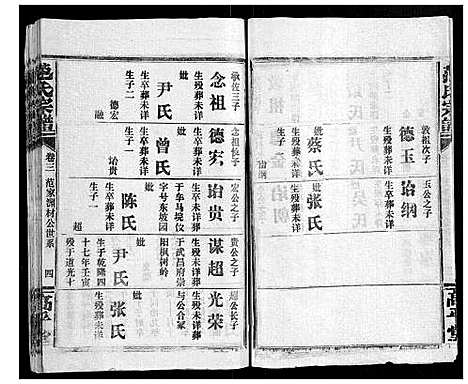 敦祖次子
德玉
生殁葬未详
妣
蔡氏
生殁葬未详
生子一
诒纲
玉公之子
诒纲
生殁葬未详
妣
张氏
生殁葬未详
承佐三子
念祖
生殁葬未详
妣
尹氏
生卒葬未详
生子二
德宏
德融
念祖长子
德宏
生殁葬未详
妣
曾氏
生卒葬未详
生子一
诒贵
宏公之子
诒贵
字号东坡园
阳枫树岭
妣
陈氏
生卒葬未详
生子一
谋超
贵公之子
谋超
生殁未详葬
于武昌府崇
妣
尹氏
生于乾隆四
十七年壬寅
殁于道光十
超公长子
光荣
生殁未详葬
与公合冢
妣
张氏
范氏宗谱
卷三
范家湖材公世系
四
高平堂